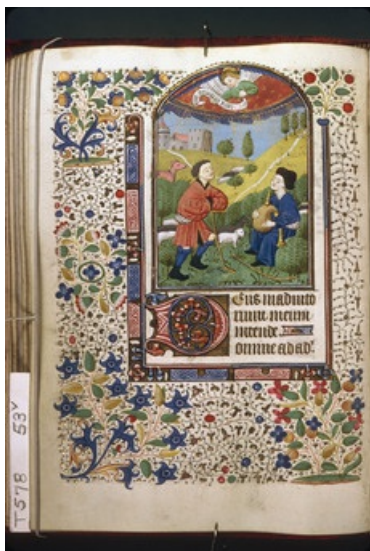 Deus in adiuto
rium meum
intende
omine ad ad
T578 53v